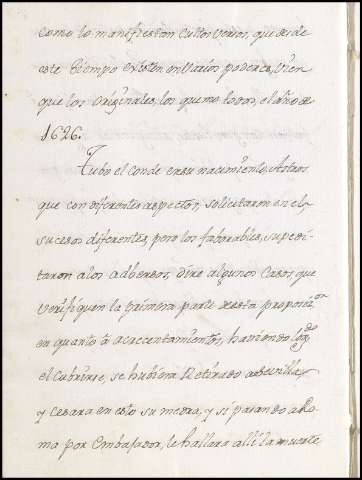 como lo manifiestan cultos versos, que de
este tiempo existen en varios poderes, vien
que los originales, los quemo todos, el año de
1626.
Tubo el conde en su nacimiento, Astros
que con diferentes aspectos, solicitaron en el,
sucesos diferentes, pero los faborables, supedi-
taron a los adbersos, dire algunos casos, que
verifiquen la primera parte de esta proposi.on
en quanto â acaecentamientos, haviendo logdo
el cubrirse, se hubiera Retirado a Sevilla,
y cesara en esto su medra, y si pasando a Ro-
ma por Embajador, le hallara alli la muerte